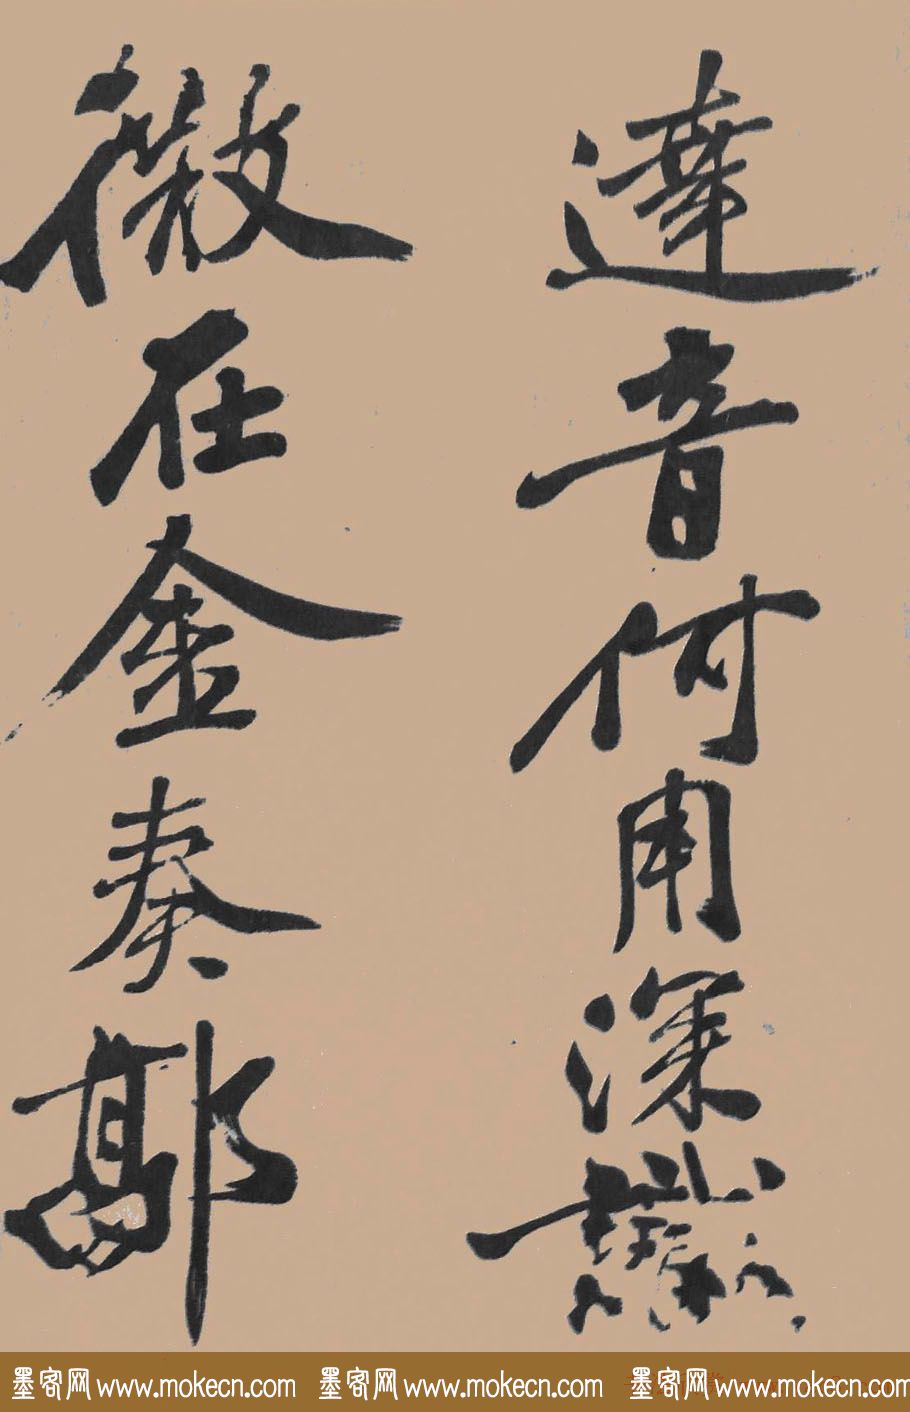 達音何用深識
微在金奏郭
墨客网www.mokecn.com 墨客网www.mokecn.com 墨客网www.mokecn.com